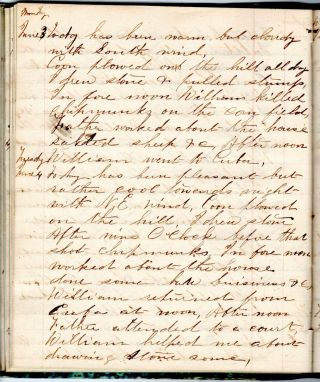 Monday
June 3 Today has been warm but cloudy
with South wind,
Coon plowed on the hill all day
I drew stone & pulled stumps,
In fore noon William killed
chipmunks on the corn field,
Father worked about the house
salted sheep &c After noon
William went to Cuba,
Tuesday
June 4 today has been pleasant but
rather cool towards night
with N.E. wind, Coon plowed
on the hill, I drew stone
After nine O'Clock before that
shot chipmunks, In fore noon
worked about the house
done some buisiness &c,
William returned from
Cuba at noon, After noon
Father attended to a court,
William helped me about
drawing stone some,